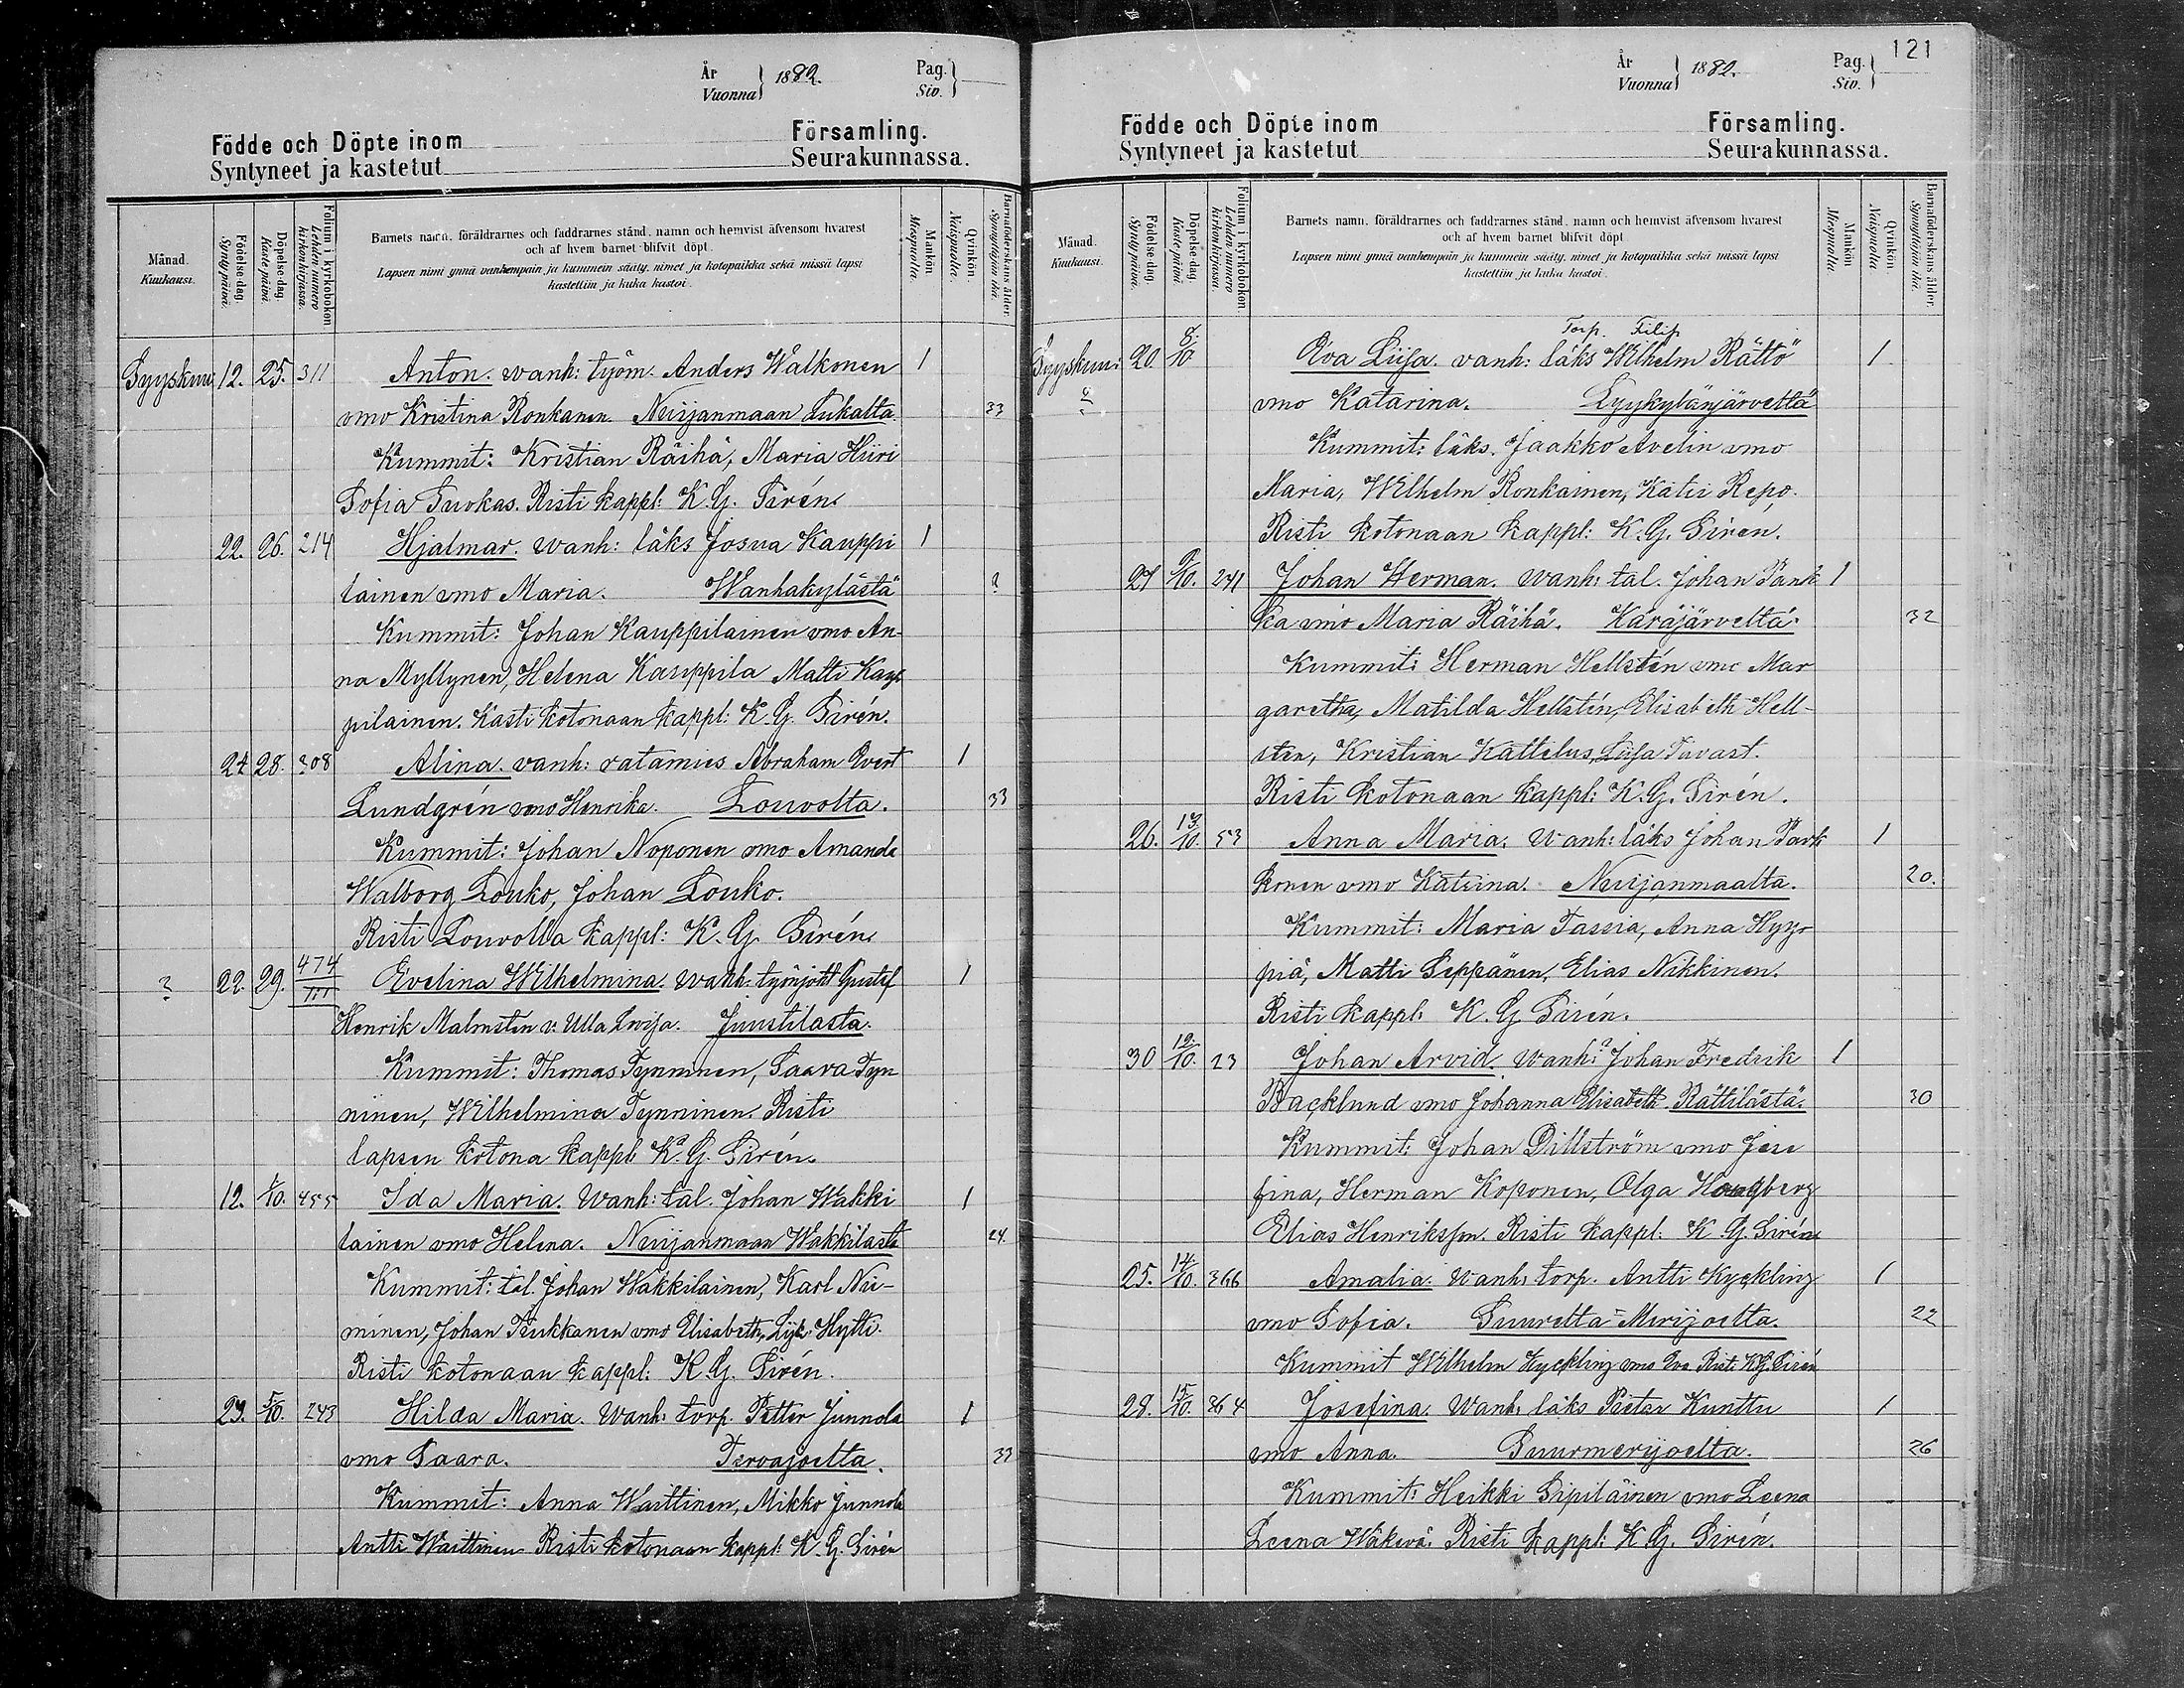 År
Vuonna } 1882.
Pag.
Siv. }
Födde och Döpte inom Församling.
Syntyneet ja kastetut Seurakunnassa.
Månad.
Kuukausi.
Födelse dag.
Syntypäivä.
Döpelse dag.
Kastepäivä.
Folium i kyrkoboken
Lehden numero kirkonkirjassa.
Barnets namn, föräldrarnes och faddrarnes stånd, namn och hemvist äfvensom hvarest
och af hvem barnet blifvit döpt.
Lapsen nimi ynnä vanhempain ja kummein sääty, nimet ja kotopaikka sekä missä lapsi
kastettiin ja kuka kastoi.
Mankön
Miespuolta.
Qvinkön.
Naispuolta.
Barnaföderskans ålder.
Synnyttäjän ikä.
Syyskuu 12. 25. 311 Anton. wanh: työm. Anders Walkonen 1
vmo Kristina Ronkanen. Nuijanmaan Lukalta. 33
Kummit: Kristian Räihä, Maria Hiiri
Sofia Suokas. Risti kappl: K. G. Sirén.
22. 26. 214 Hjalmar. wanh: läks Josua Kauppi 1
lainen vmo Maria. Wanhakylästä ?
Kummit: Johan Kauppilainen vmo An-
na Myllynen, Helena Kauppila Matti Kaup
pilainen. Kasti kotonaan kappl: K. G. Sirén.
24 28. 308 Alina. vanh: ratamies Abraham Evert 1
Lundgrén vmo Henrika. Louvolta. 33
Kummit: Johan Noponen vmo Amanda
Walborg Louko, Johan Louko.
Risti Louvolla kappl: K. G. Sirén.
? 22. 29. 474 III Evelina Wilhelmina. wanh: työnjoht Gustaf 1
Henrik Malmstén v: Ulla Lovisa. Juustilasta.
Kummit: Thomas Tynninen, Saara Tyn
ninen, Wilhelmina Tynninen. Risti
lapsen kotona kappl: K. G. Sirén.
12. 1/10. 455 Ida Maria. Wanh: tal. Johan Wakki 1
lainen vmo Helena. Nuijanmaan Wakkilasta 24.
Kummit: tal. Johan Wakkilainen, Karl Nie-
minen, Johan Tsukkanen vmo Elisabeth, Hytti.
Risti kotonaan kappl: K. G. Sirén.
23. 5/10. 243 Hilda Maria. Wanh: torp. Petter Junnola 1
vmo Saara. Tervajoelta. 33
Kummit: Anna Waittinen, Mikko Junnola
Antti Waittinen Risti kotonaan kappl: K. G. Sirén
121
År
Vuonna } 1882.
Pag.
Siv. }
Födde och Döpte inom Församling.
Syntyneet ja kastetut Seurakunnassa.
Månad.
Kuukausi.
Födelse dag.
Syntypäivä.
Döpelse dag.
Kastepäivä.
Folium i kyrkoboken
Lehden numero kirkonkirjassa.
Barnets namn, föräldrarnes och faddrarnes stånd, namn och hemvist äfvensom hvarest
och af hvem barnet blifvit döpt.
Lapsen nimi ynnä vanhempain ja kummein sääty, nimet ja kotopaikka sekä missä lapsi
kastettiin ja kuka kastoi.
Mankön
Miespuolta.
Qvinkön
Naispuolta.
Barnaföderskans ålder.
Synnyttäjän ikä.
Torp. Filip
Syyskuu: 20. 8/10 Eva Liisa. vanh: läks Wilhelm Rättö 1
? vmo Katarina. Lyykylänjärveltä
Kummit: läks. Jaakko Avelin vmo
Maria, Wilhelm Ronkainen, Katri Repo.
Risti kotonaan kappl: K. G. Sirén.
27 9/10. 241 Johan Herman. Wanh: tal. Johan Pank 1
ka vmo Maria Räihä. Käräjärveltä. 32
Kummit: Herman Hellstén vmo Mar
garetha, Matilda Hellstén, Elisabeth Hell-
sten, Kristian Kattelus, Liisa Tavast.
Risti kotonaan kappl: K. G. Sirén.
26. 13/10. 53 Anna Maria. Wanh: läks Johan Park 1
konen vmo Katrina. Nuijanmaalta. 20.
Kummit: Maria Tassia, Anna Hyyp
piä, Matti Seppänen, Elias Nikkinen.
Risti kappl: K. G. Sirén.
30 12/10. 23 Johan Arvid. Wanh:? Johan Fredrik 1
Backlund vmo Johanna Elisabeth Rättilästä. 30
Kummit: Johan Dillström vmo Jose
fina, Herman Koponen, Olga Hougberg
Elias Henriksson. Risti kappl: K. G. Sirén
25. 14/10. 366 Amalia. Wanh: torp. Antti Kyckling 1
vmo Sofia. Suurelta Merijoelta. 22
Kummit Wilhelm Kyckling vmo Eva Risti K.G. Sirén
28. 15/10. 364 Josefina. Wanh: läks Pietar Kunttu 1
vmo Anna. Suurmerijoelta. 26
Kummit: Heikki Sipiläinen vmo Leena
Leena Wäkevä. Risti kappl: K. G. Sirén.